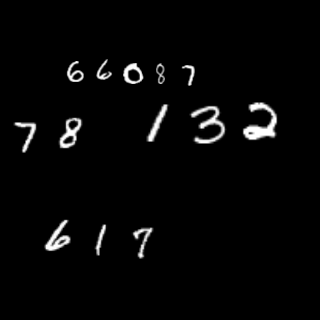 66087
78 132
617